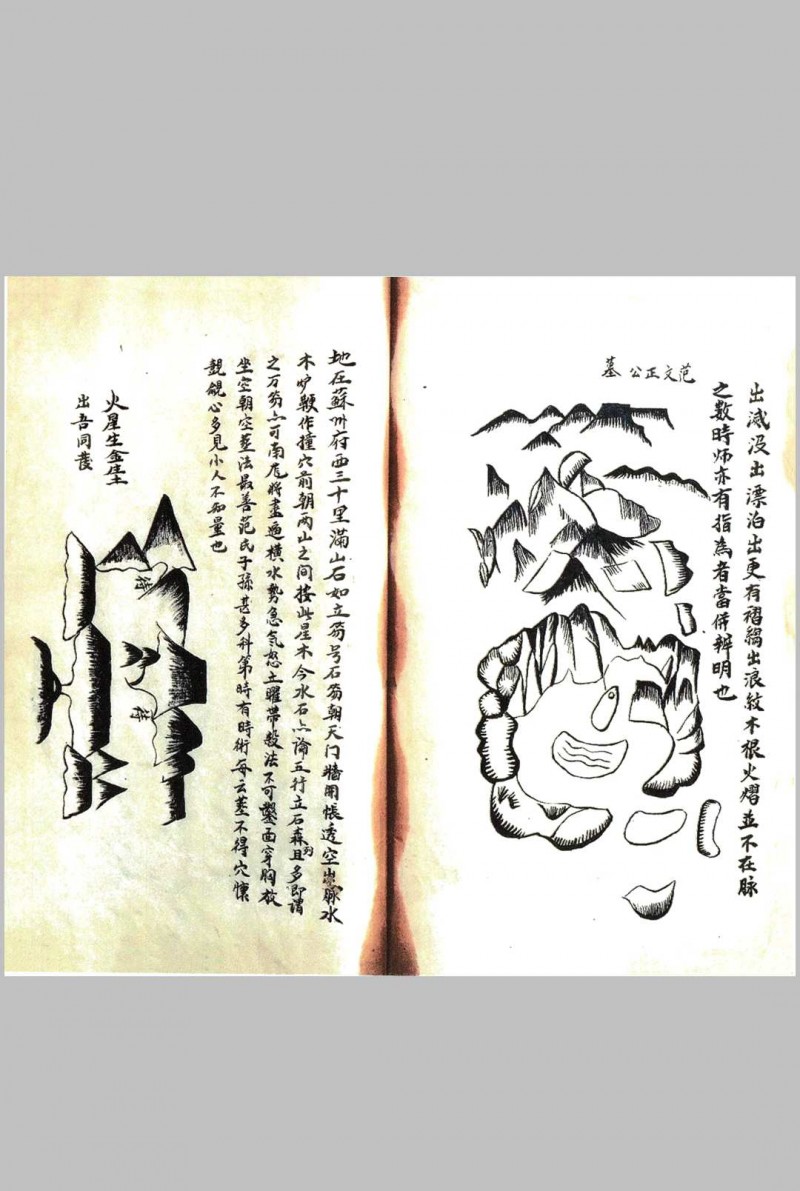 出減没出漂泊出更有褶綢出浪紋木根火熠並不在脉
之數時师亦有指為者當併辨明也
范文正公墓
地在蘇州府西三十里滿山石如立笏号石笏朝天门牆用帳透空出脉水
木炉鞭作撞穴前朝两山之间按此星木今水石点論五行立石森列且多即谓
之万笏点可南龙將盡通橫水势急氣怒土曜帶殺法不可鑿面穿胸故
坐空朝空葬法最善范氏子孫甚多科第時有時術每云葬不得穴懷
覬覦心多見小人不知量也
火星生金星土
出吾同裁